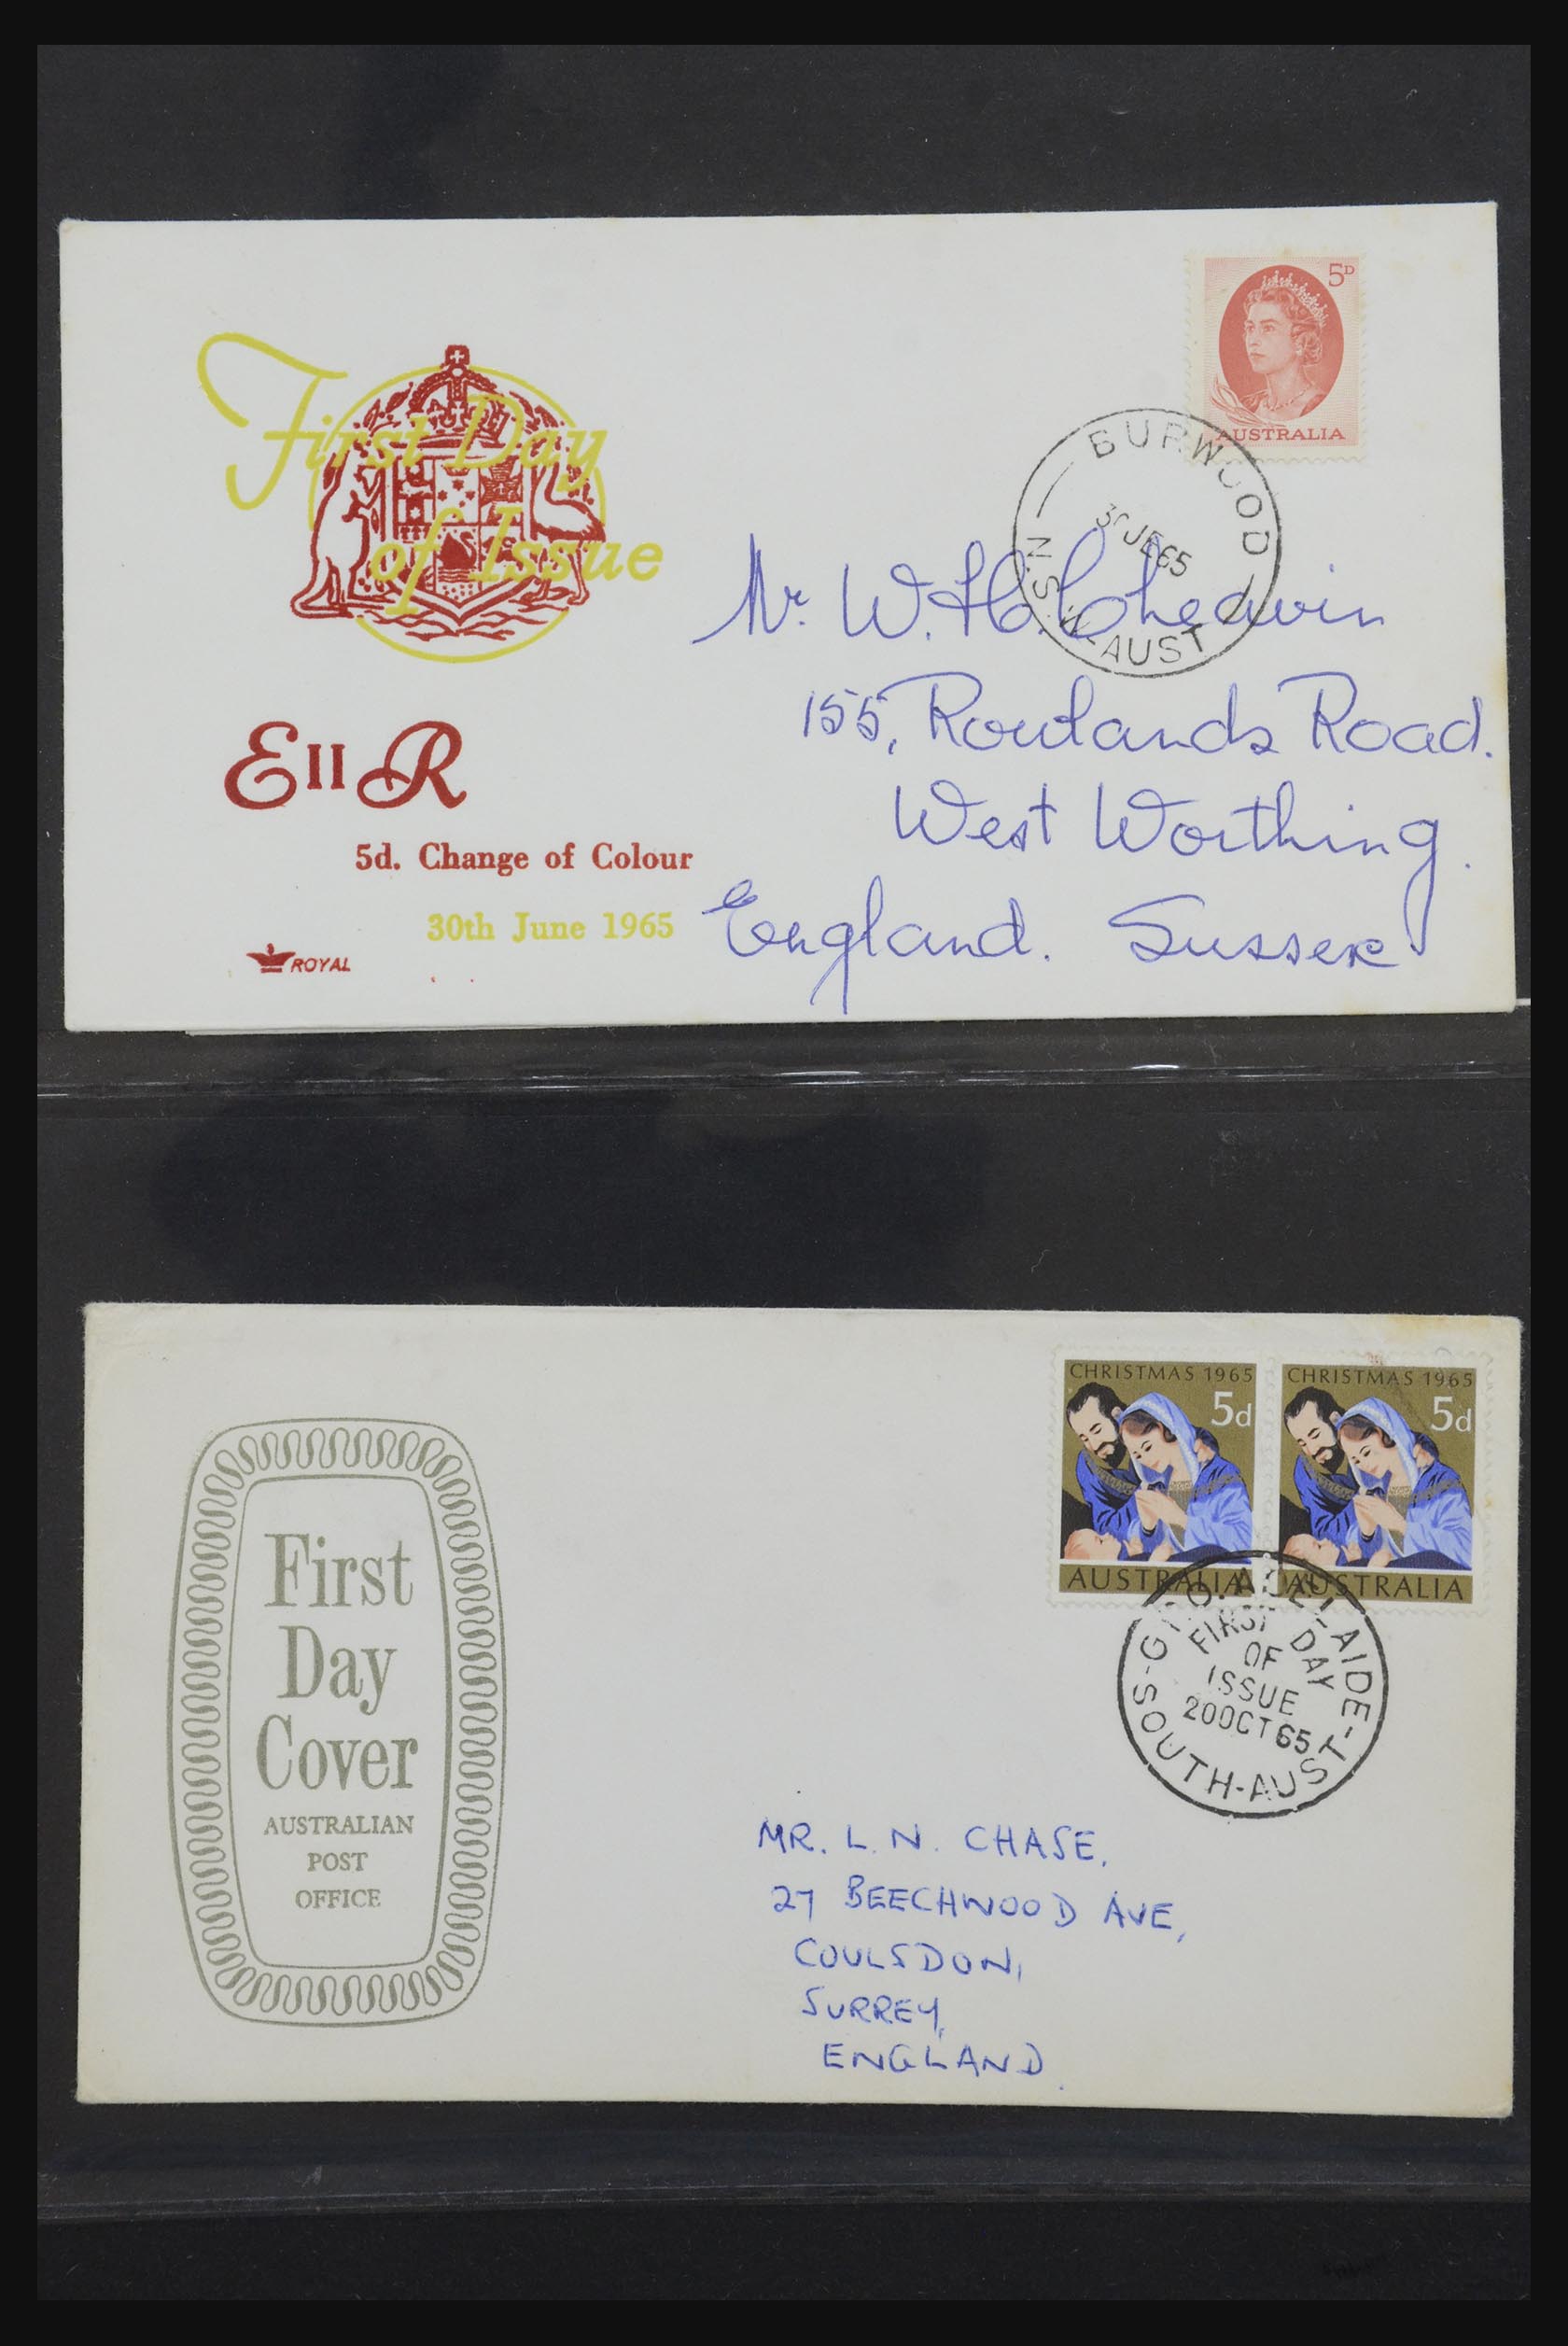 5D
AUSTRALIA
BURWOOD
30 JE 65
N.S.W-AUST
First Day
of Issue
E II R
5d. Change of Colour
30th June 1965
ROYAL
Mr. W. H.
155, Rowlands Road.
West Worthing.
England. Sussex
CHRISTMAS 1965
5d
AUSTRALIA
CHRISTMAS 1965
5d
AUSTRALIA
G.P.O. ADELAIDE-
FIRST DAY
OF
ISSUE
20 OCT 65
-SOUTH-AUST-
First
Day
Cover
AUSTRALIAN
POST
OFFICE
MR. L. N. CHASE,
27 BEECHWOOD AVE,
COULSDON,
SURREY,
ENGLAND.